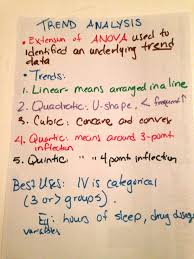 TREND ANALYSIS
• Extension of ANOVA used to
identified an underlying trend
data
• Trends:
1. Linear- means arranged in a line
2. Quadratic: U-shape, < frequent
3. Cubic: Concave and convex
4. Quartic: means around 3-point
inflection
5. Quintic " " 4 point inflection
Best Uses: IV is categorical
(3 or > groups).
Eg: hours of sleep, drug
variables